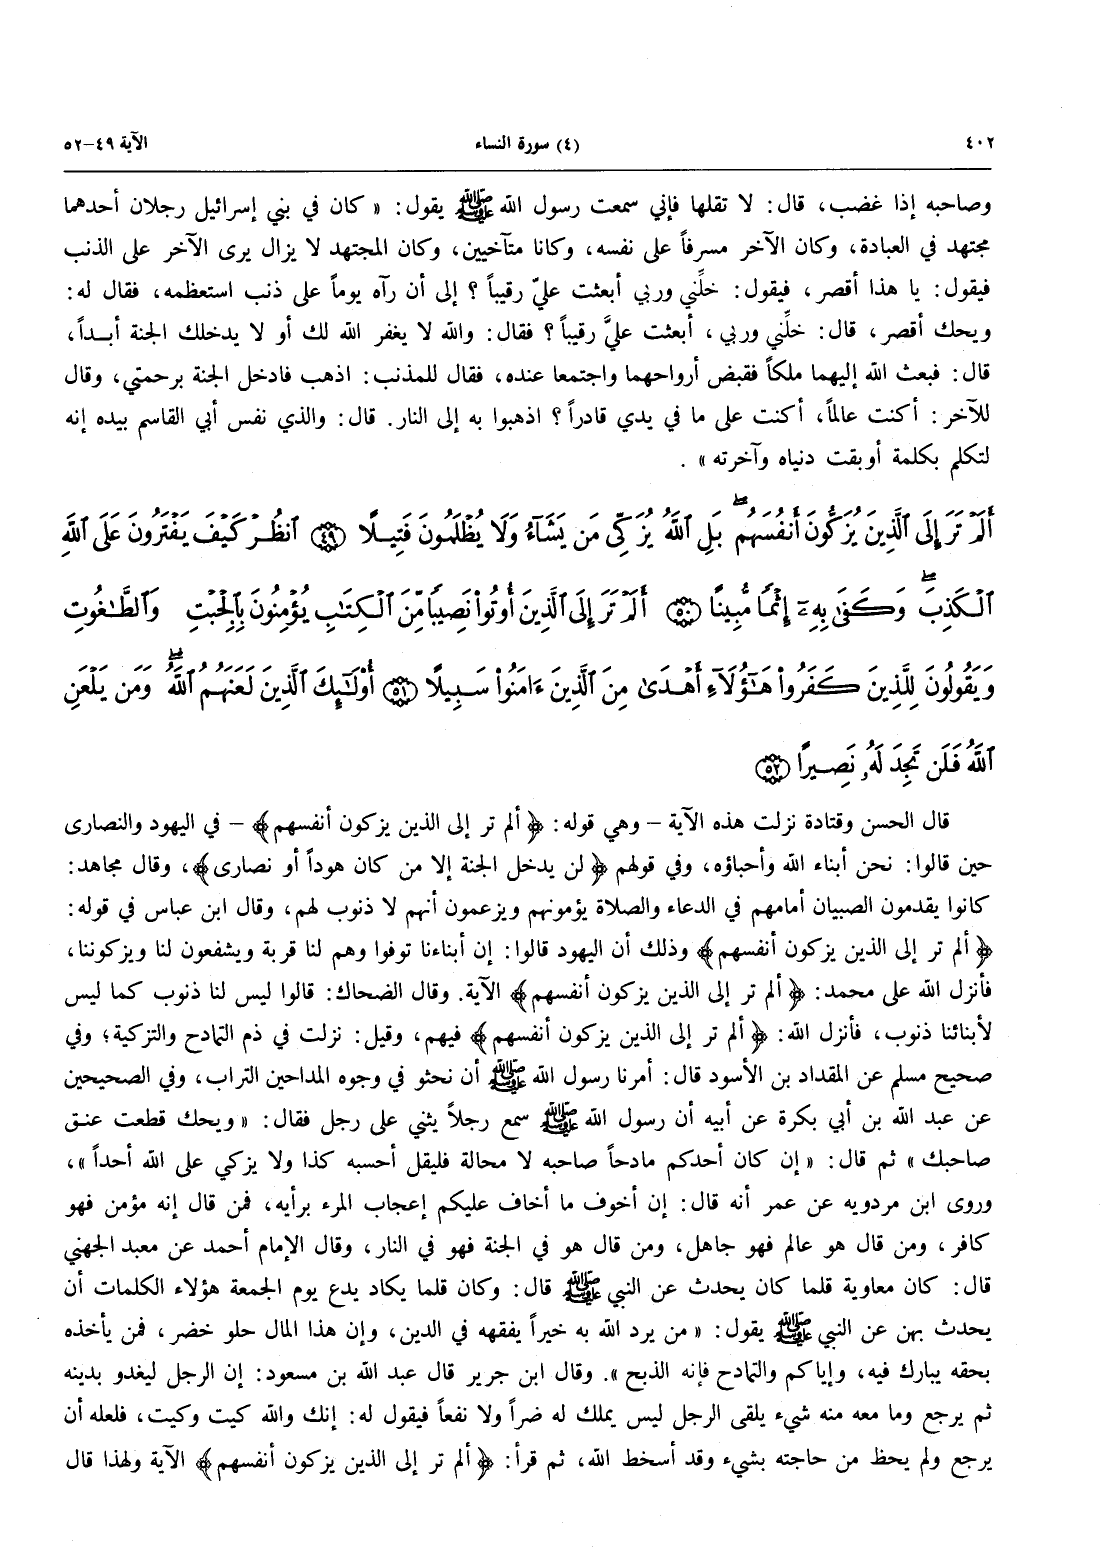 ٤٠٢ (٤) سورة النساء الآية ٤٩-٥٢
وصاحبه إذا غضب، قال: لا تقلها فإني سمعت رسول الله ﷺ يقول: « كان في بني إسرائيل رجلان أحدهما
مجتهد في العبادة، وكان الآخر مسرفاً على نفسه، وكانا متآخيين، وكان المجتهد لا يزال يرى الآخر على الذنب
فيقول: يا هذا أقصر، فيقول: خلِّني وربي أبعثت عليّ رقيباً ؟ إلى أن رآه يوماً على ذنب استعظمه، فقال له:
ويحك أقصر، قال: خلِّني وربي، أبعثت عليَّ رقيباً ؟ فقال: والله لا يغفر الله لك أو لا يدخلك الجنة أبـداً،
قال: فبعث الله إليهما ملكاً فقبض أرواحهما واجتمعا عنده، فقال للمذنب: اذهب فادخل الجنة برحمتي، وقال
للآخر: أكنت عالماً، أكنت على ما في يدي قادراً ؟ اذهبوا به إلى النار. قال: والذي نفس أبي القاسم بيده إنه
لتكلم بكلمة أوبقت دنياه وآخرته » .
أَلَمْ تَرَ إِلَى ٱلَّذِينَ يُزَكُّونَ أَنفُسَهُمۖ بَلِ ٱللَّهُ يُزَكِّى مَن يَشَآءُ وَلَا يُظْلَمُونَ فَتِيلًا ﴿٤٩﴾ ٱنظُرْ كَيْفَ يَفْتَرُونَ عَلَى ٱللَّهِ
ٱلْكَذِبَۖ وَكَفَىٰ بِهِۦٓ إِثْمًا مُّبِينًا ﴿٥٠﴾ أَلَمْ تَرَ إِلَى ٱلَّذِينَ أُوتُوا۟ نَصِيبًا مِّنَ ٱلْكِتَٰبِ يُؤْمِنُونَ بِٱلْجِبْتِ وَٱلطَّٰغُوتِ
وَيَقُولُونَ لِلَّذِينَ كَفَرُوا۟ هَٰٓؤُلَآءِ أَهْدَىٰ مِنَ ٱلَّذِينَ ءَامَنُوا۟ سَبِيلًا ﴿٥١﴾ أُو۟لَٰٓئِكَ ٱلَّذِينَ لَعَنَهُمُ ٱللَّهُۖ وَمَن يَلْعَنِ
ٱللَّهُ فَلَن تَجِدَ لَهُۥ نَصِيرًا ﴿٥٢﴾
قال الحسن وقتادة نزلت هذه الآية – وهي قوله: ﴿ ألم تر إلى الذين يزكون أنفسهم ﴾ – في اليهود والنصارى
حين قالوا: نحن أبناء الله وأحباؤه، وفي قولهم ﴿ لن يدخل الجنة إلا من كان هوداً أو نصارى ﴾، وقال مجاهد:
كانوا يقدمون الصبيان أمامهم في الدعاء والصلاة يؤمونهم ويزعمون أنهم لا ذنوب لهم، وقال ابن عباس في قوله:
﴿ ألم تر إلى الذين يزكون أنفسهم ﴾ وذلك أن اليهود قالوا: إن أبناءنا توفوا وهم لنا قربة ويشفعون لنا ويزكوننا،
فأنزل الله على محمد: ﴿ ألم تر إلى الذين يزكون أنفسهم ﴾ الآية. وقال الضحاك: قالوا ليس لنا ذنوب كما ليس
لأبنائنا ذنوب، فأنزل الله: ﴿ ألم تر إلى الذين يزكون أنفسهم ﴾ فيهم، وقيل: نزلت في ذم التمادح والتزكية؛ وفي
صحيح مسلم عن المقداد بن الأسود قال: أمرنا رسول الله ﷺ أن نحثو في وجوه المداحين التراب، وفي الصحيحين
عن عبد الله بن أبي بكرة عن أبيه أن رسول الله ﷺ سمع رجلاً يثني على رجل فقال: « ويحك قطعت عنـق
صاحبك » ثم قال: « إن كان أحدكم مادحاً صاحبه لا محالة فليقل أحسبه كذا ولا يزكي على الله أحداً »،
وروى ابن مردويه عن عمر أنه قال: إن أخوف ما أخاف عليكم إعجاب المرء برأيه، فمن قال إنه مؤمن فهو
كافر، ومن قال هو عالم فهو جاهل، ومن قال هو في الجنة فهو في النار، وقال الإمام أحمد عن معبد الجهني
قال: كان معاوية قلما كان يحدث عن النبي ﷺ قال: وكان قلما يكاد يدع يوم الجمعة هؤلاء الكلمات أن
يحدث بهن عن النبي ﷺ يقول: « من يرد الله به خيراً يفقهه في الدين، وإن هذا المال حلو خضر، فمن يأخذه
بحقه يبارك فيه، وإياكم والتمادح فإنه الذبح ». وقال ابن جرير قال عبد الله بن مسعود: إن الرجل ليغدو بدينه
ثم يرجع وما معه منه شيء يلقى الرجل ليس يملك له ضراً ولا نفعاً فيقول له: إنك والله كيت وكيت، فلعله أن
يرجع ولم يحظ من حاجته بشيء وقد أسخط الله، ثم قرأ: ﴿ ألم تر إلى الذين يزكون أنفسهم ﴾ الآية ولهذا قال